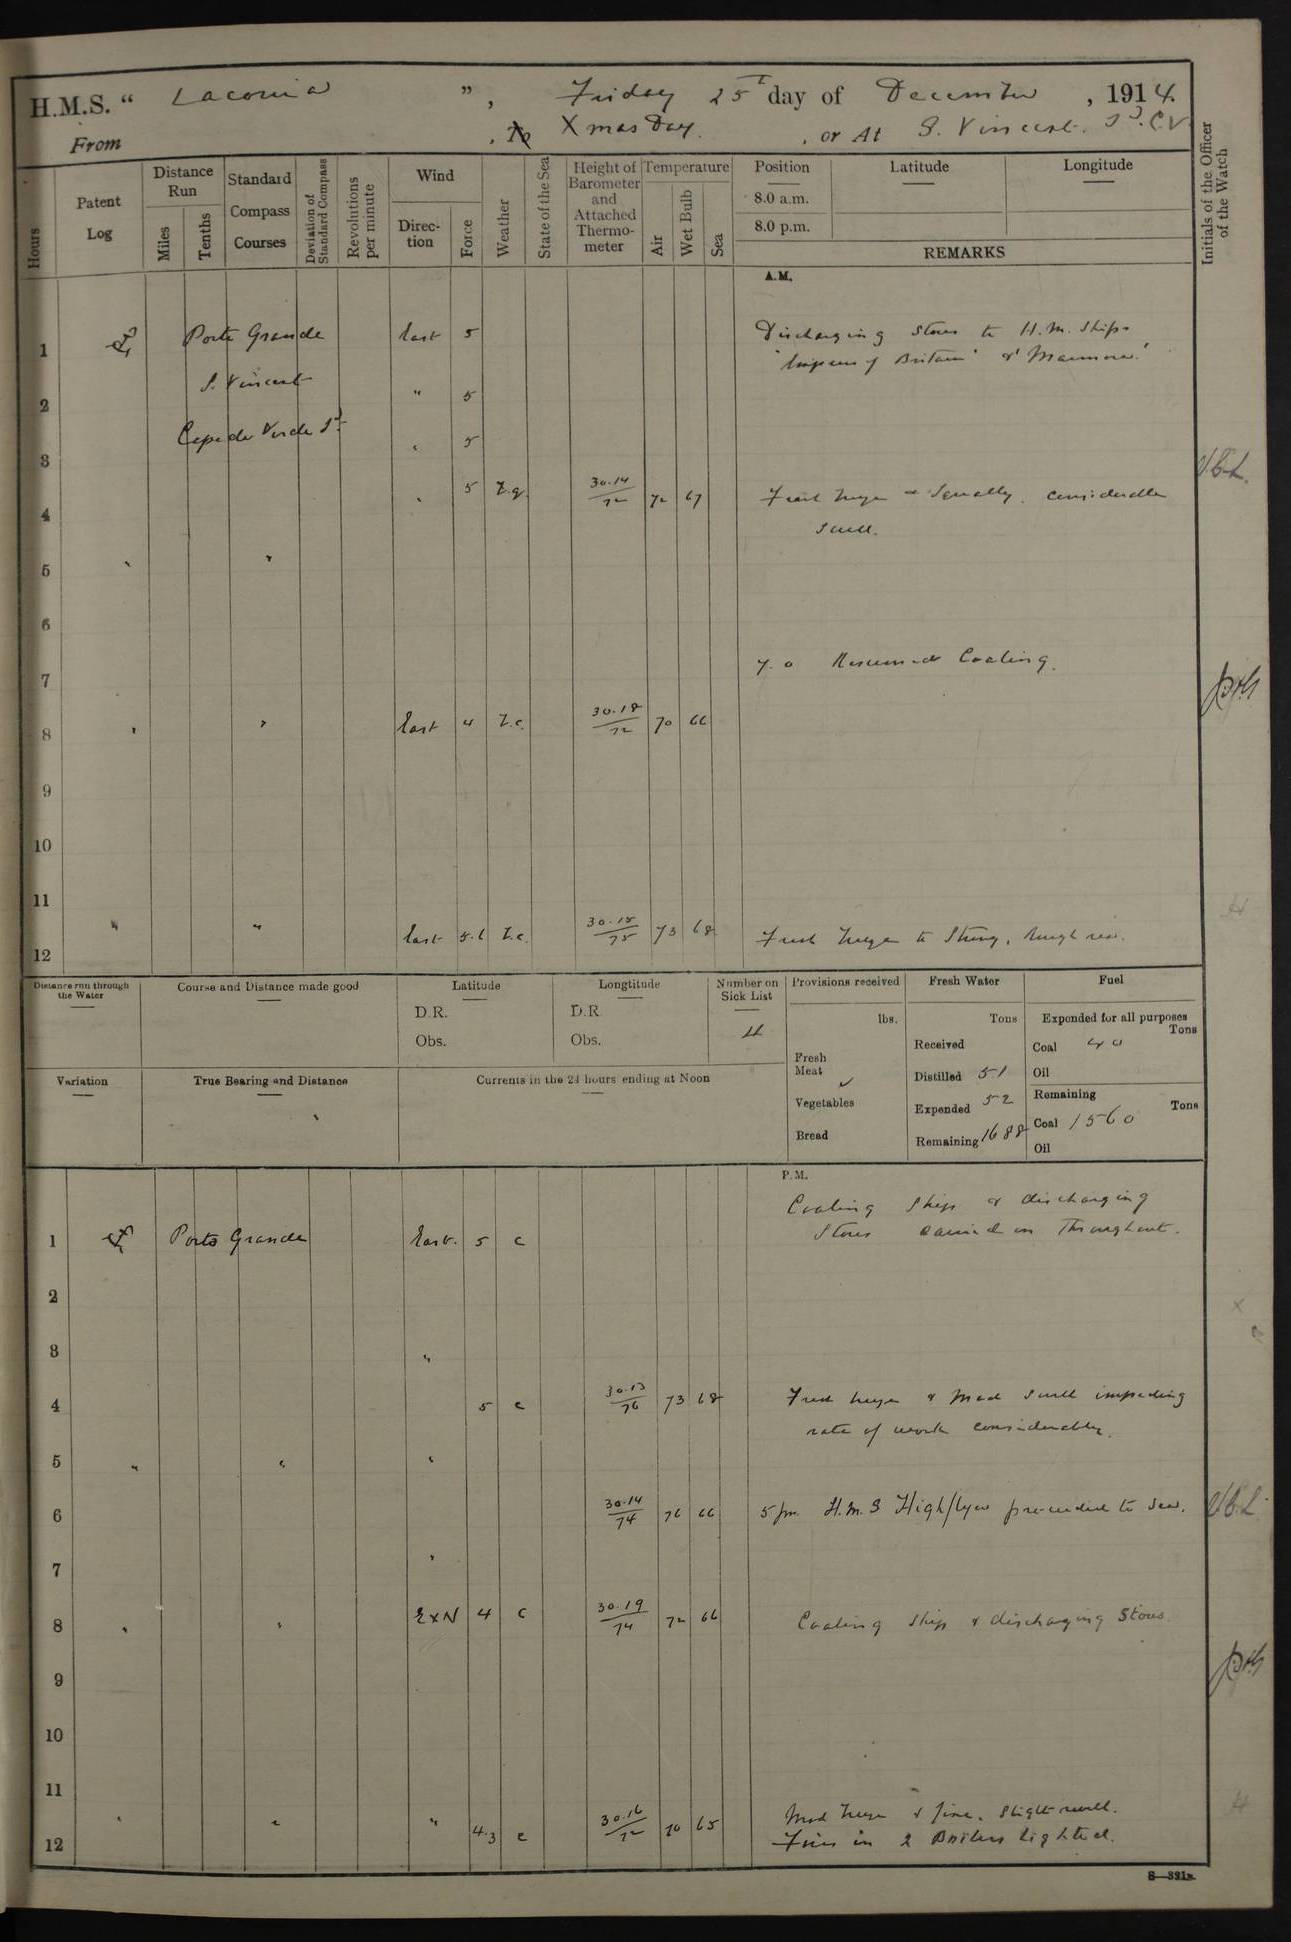 H.M.S. “ Laconia ”, Friday 25th day of December, 1914.
From , To Xmas Day. , or At S. Vincent. Id. C.V.
Hours
Patent Log
Distance Run
Miles
Tenths
Standard Compass Courses
Deviation of Standard Compass
Revolutions per minute
Wind
Direc-tion
Force
Weather
State of the Sea
Height of Barometer and Attached Thermo-meter
Temperature
Air
Wet Bulb
Sea
Position
8.0 a.m.
8.0 p.m.
Latitude
Longitude
REMARKS
Initials of the Officer of the Watch
A.M.
1 Porto Grande East 5 Discharging Stores to H.M. Ships
"Empress of Britain" & "Marmora."
2 S. Vincent " 5
3 Cape de Verde Id. " 5
V.B.L.
4 " 5 Z.q. 30.14/72 72 67 Fresh breeze & Squally. considerable
swell.
5 " "
6
7 7.0 Resumed Coaling.
8 " " East 4 Z.c. 30.18/72 70 66
9
10
11
12 " " East 5.6 Z.c. 30.18/75 73 68 Fresh breeze to Strong, rough sea.
Distance run through the Water
Course and Distance made good
Latitude
D.R.
Obs.
Longtitude
D.R.
Obs.
Number on Sick List
4
Provisions received
lbs.
Fresh Meat
Vegetables
Bread
Fresh Water
Tons
Received
Distilled 51
Expended 52
Remaining 1688
Fuel
Expended for all purposes
Tons
Coal 40
Oil
Remaining
Tons
Coal 1560
Oil
Variation
True Bearing and Distance
Currents in the 24 hours ending at Noon
P.M.
Coaling Ship & discharging
1 Porto Grande East. 5 c Stores carried on throughout.
2
3 "
4 5 c 30.13/76 73 68 Fresh breeze & mod swell impeding
rate of work considerably.
5 " " "
6 30.14/74 76 66 5 pm. H.M.S Highflyer proceeded to sea. V.B.L.
7 "
8 " " ExN 4 c 30.19/74 72 66 Coaling Ship & discharging Stores.
9
10
11
Mod breeze & fine. Slight swell.
12 " " " 4.3 c 30.16/72 70 65 Fires in 2 Boilers lighted.
S—321B.